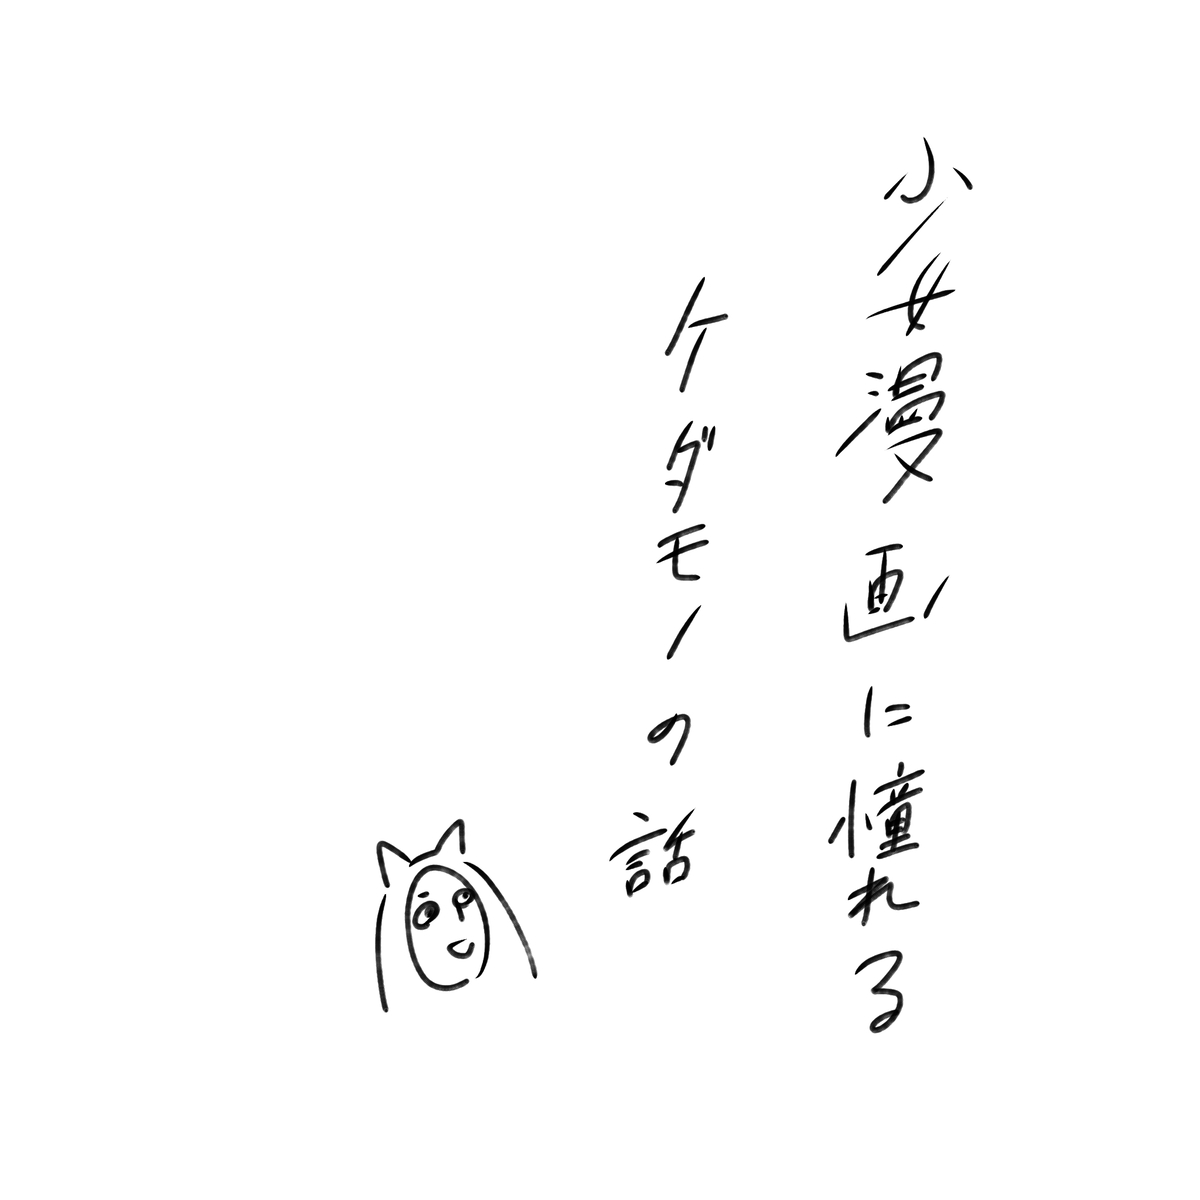 少女漫画に憧れる
ケダモノの話